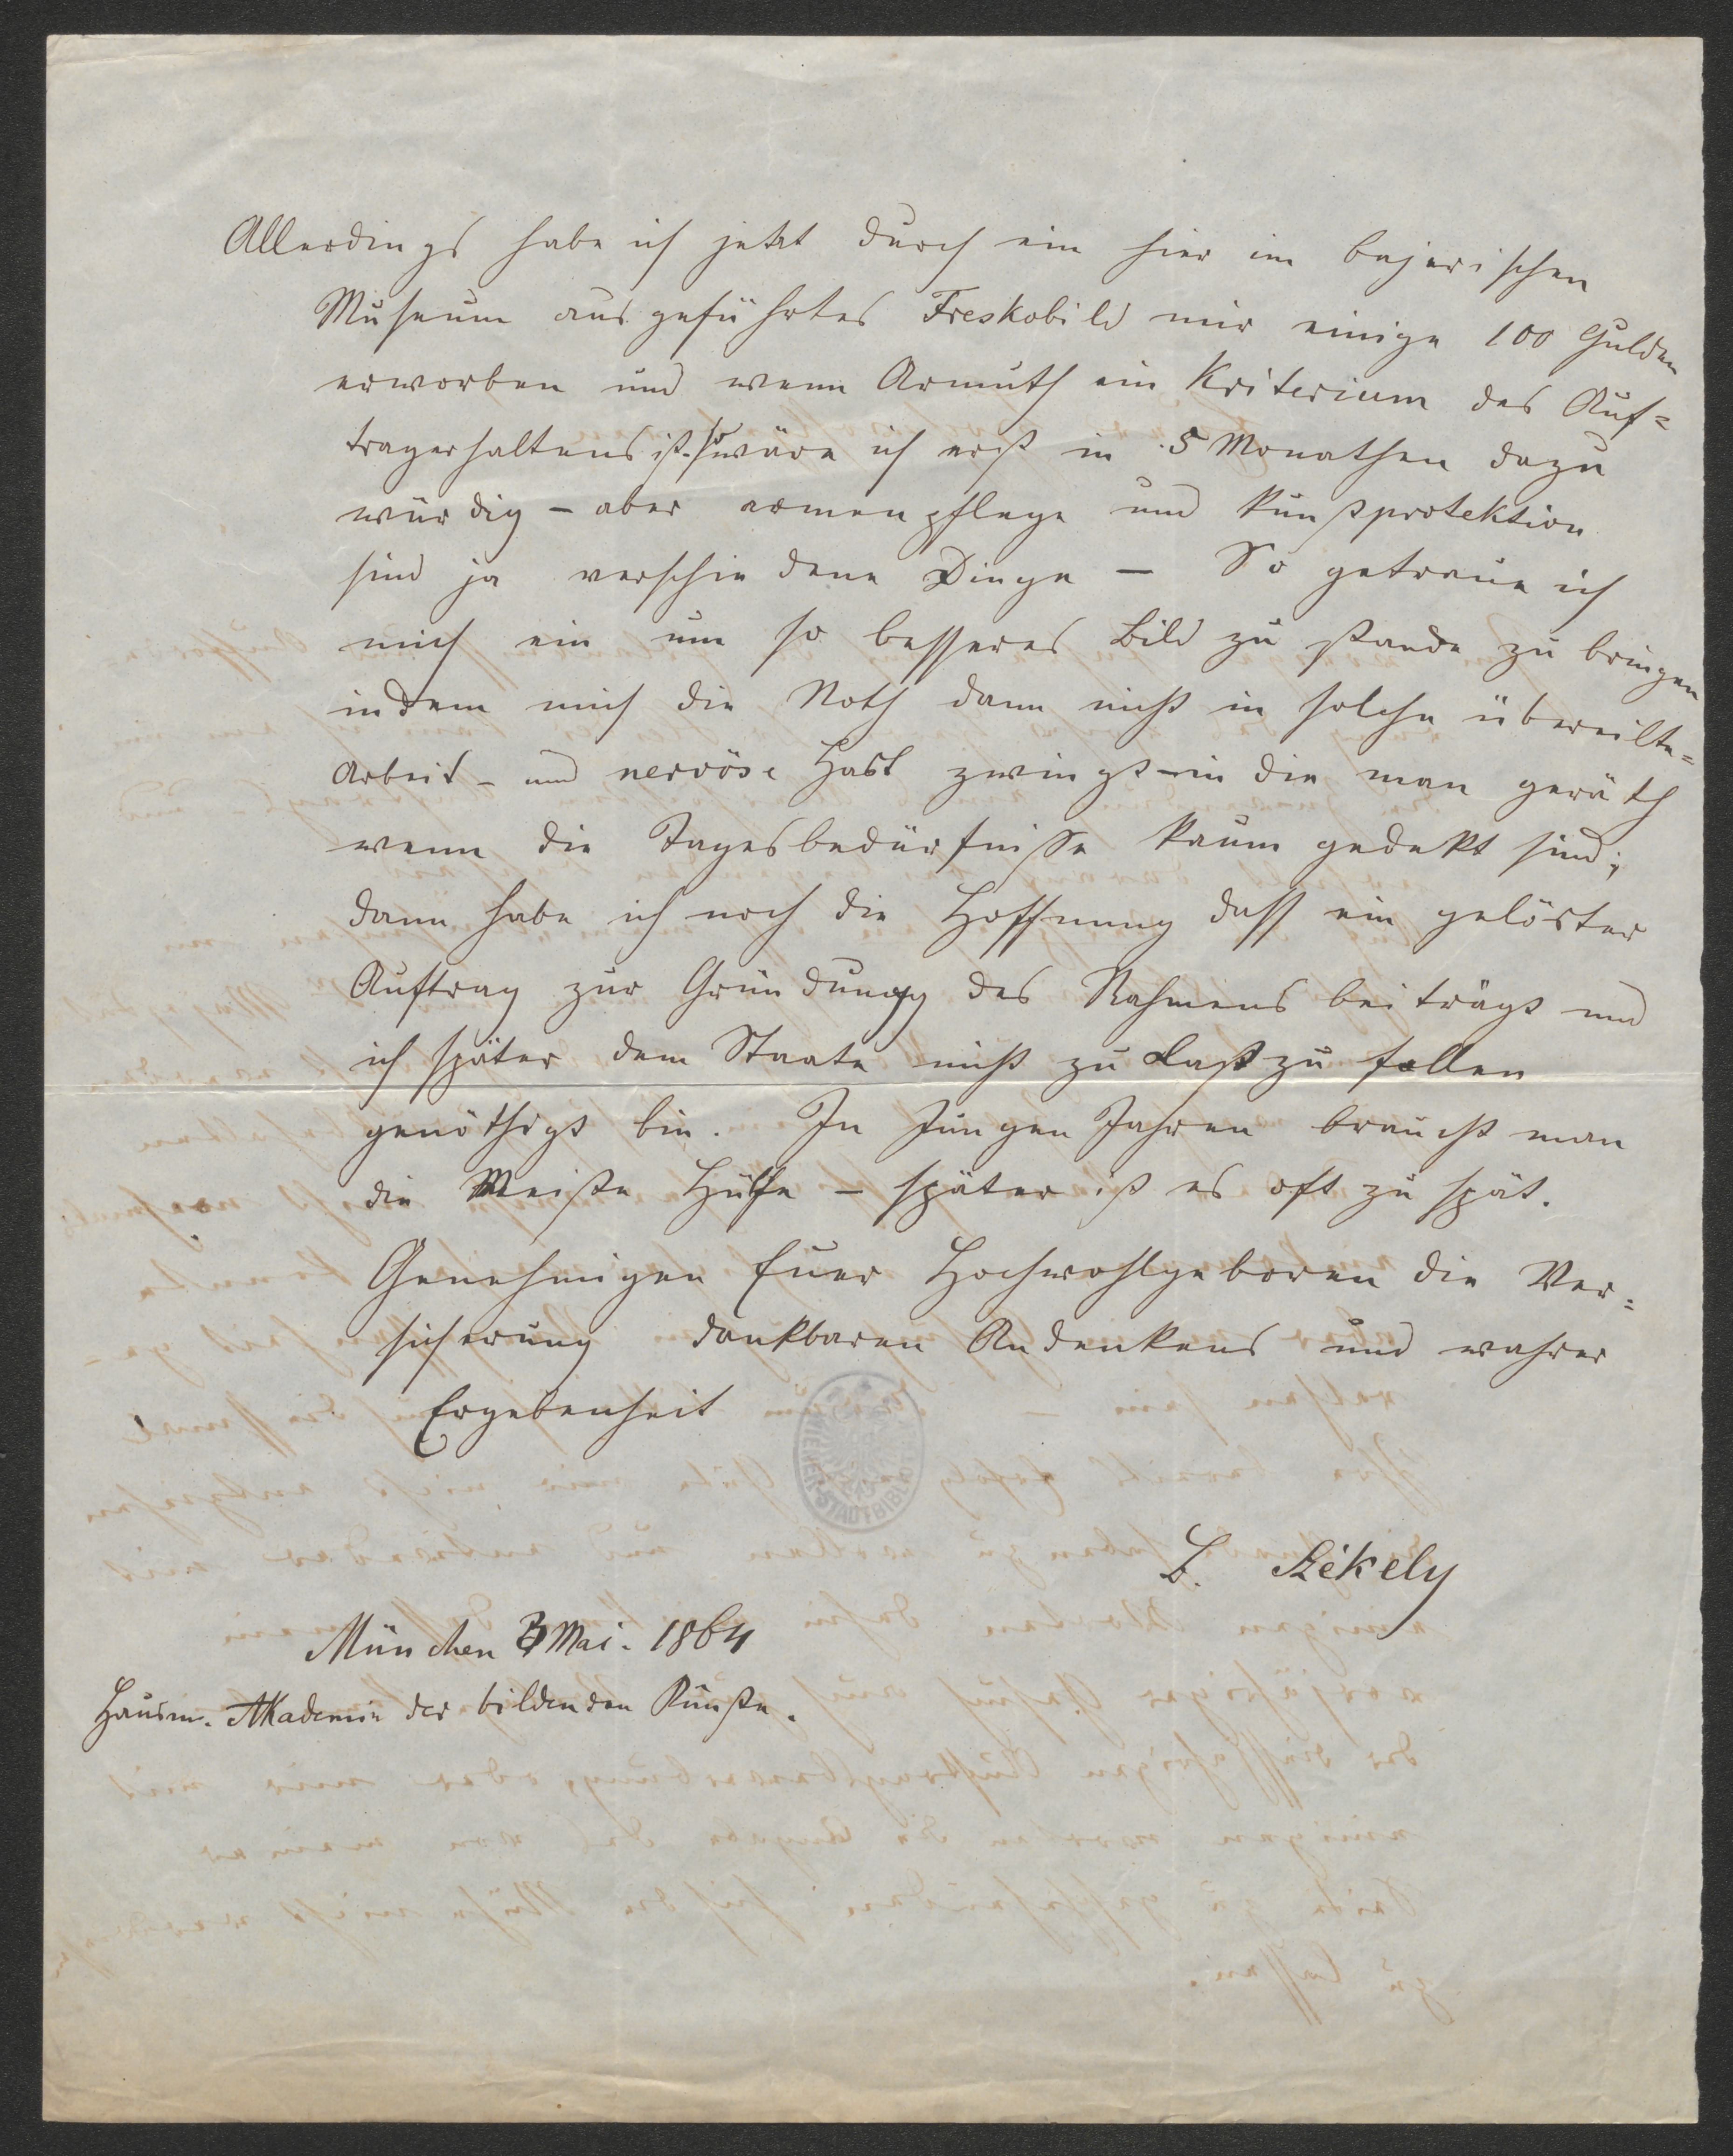 Allerdings habe ich jetzt durch ein hier im bajerischen
Museum ausgeführtes Freskobild mir einige 100 Gulden
erworben und wenn Armuth ein Kriterium des Auf=
tragerhaltens ist so wäre ich erst in 5 Monathen dazu
würdig – aber armenpflege und Kunstprotektion
sind ja verschiedene Dinge – So getraue ich
mich ein um so besseres Bild zu stande zu bringen
indem mich die Noth dann nicht in solche übereilte=
Arbeit – und nervöse Hast zwingt – in die man geräth
wenn die Tagesbedürfnisse kaum gedekt sind;
dann habe ich noch die Hoffnung dass ein gelöster
Auftrag zur Gründung des Nahmens beiträgt und
ich später dem Staate nicht zu Last zu fallen
genöthigt bin. In Jungen Jahren braucht man
die Meiste Hülfe – später ist es oft zu spät.
Genehmigen Euer Hochwohlgeboren die Ver=
sicherung dankbaren Andenkens und wahrer
Ergebenheit
WIENER STADTBIBLIOTHEK
B. Székely
München 3 Mai. 1864
Akademie der bildenden Künste.